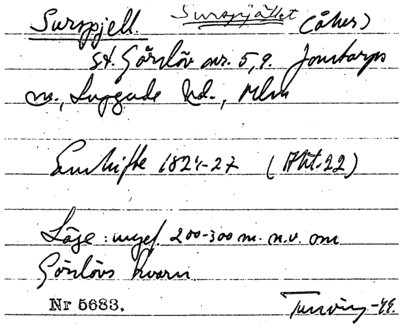 Surspjell. Surspjället (åker)
St. Görslöv nr. 5, 9. Jonstorps
m., Luggude hd., Mlm
Enskifte 1824-27 (Akt. 22)
Läge: ungef. 200-300 m. n.v. om
Görslövs kvarn
Nr 5683. -49.